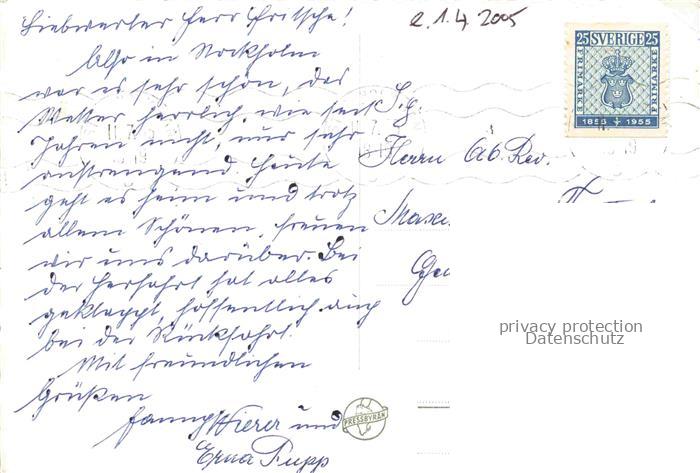 Liebwerter Herr Fritsche!
Also in Stockholm
war es sehr schön, das
Wetter herrlich, wie seit
Jahren nicht, nur sehr
anstrengend. Heute
geht es heim und trotz
allem Schönen, freuen
wir uns darüber. Bei
der Herfahrt hat alles
geklappt, hoffentlich auch
bei der Rückfahrt.
Mit freundlichen
Grüßen
Fanny Wierer und
Erna Fupp
e. 1. 4. 2005
25 SVERIGE 25
FRIMÄRKE
FRIMÄRKE
1855 1955
S. g.
Herrn Ob. Rev.
privacy protection
Datenschutz
PRESSBYRÅN